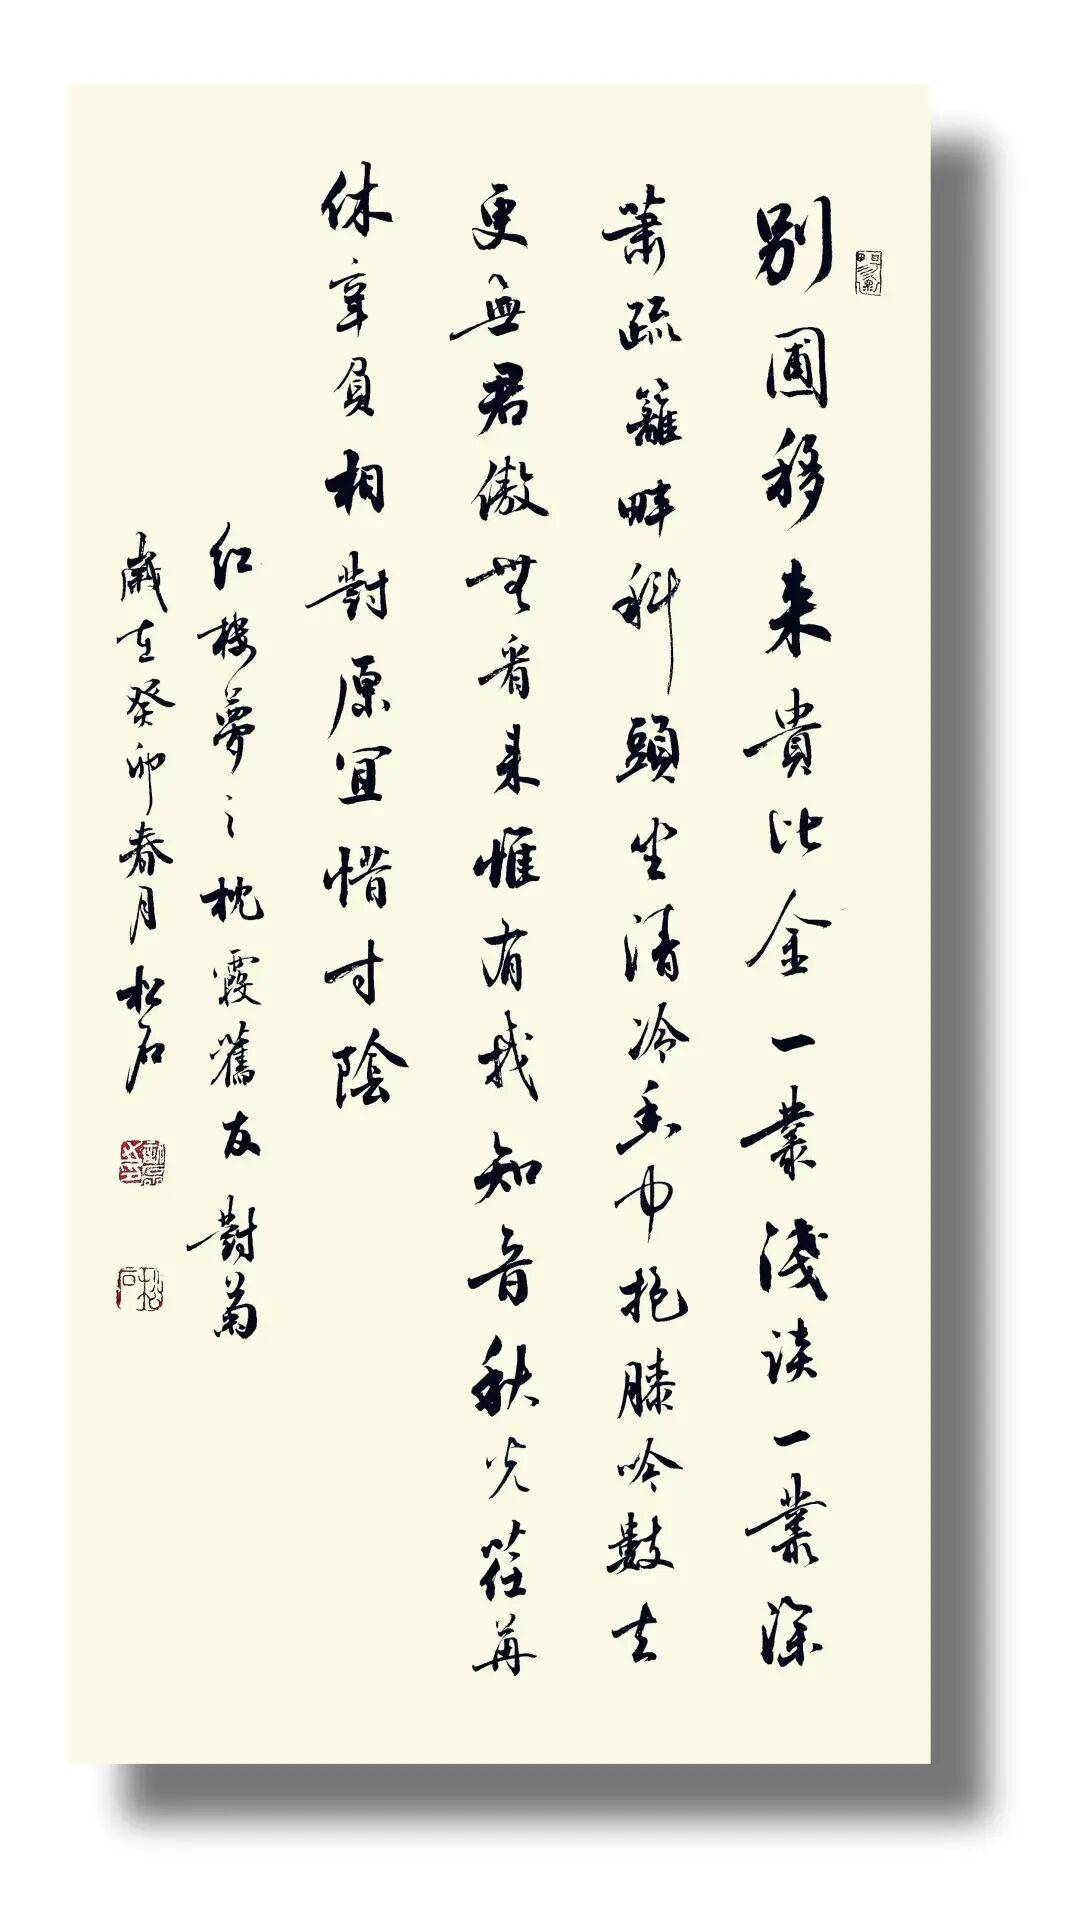 别圃移来貴比金一叢淺淡一叢深
蕭疏籬畔科頭坐清冷香中抱膝吟數去
更無君傲世看来惟有我知音秋光荏苒
休辜負相對原宜惜寸陰
红楼夢之枕霞舊友 對菊
歲在癸卯春月 松石
松石